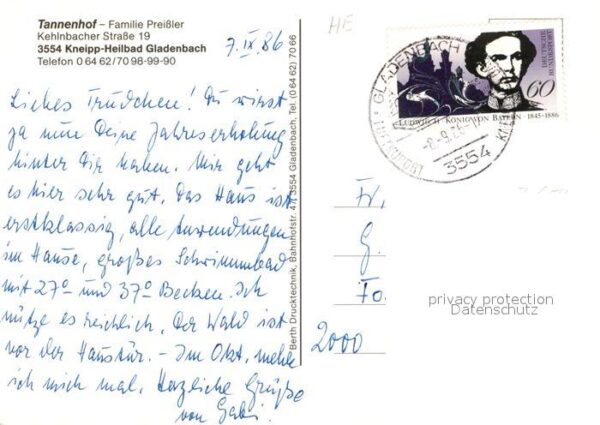 Tannenhof – Familie Preißler
Kehlnbacher Straße 19
3554 Kneipp-Heilbad Gladenbach
Telefon 0 64 62/70 98-99-90
7.IX.86
Liebes Trudchen! Du wirst
ja nun Deine Jahreserholung
hinter Dir haben. Mir geht
es hier sehr gut. Das Haus ist
erstklassig, alle Anwendungen
im Hause, großes Schwimmbad
mit 27° und 37° Becken. Ich
nütze es reichlich. Der Wald ist
vor der Haustür. – Im Okt. melde
ich mich mal. Herzliche Grüße
von Gabi.
Berth Drucktechnik, Bahnhofstr. 3554 Gladenbach, Tel. (0 64 62) 70 66
HE
GLADENBACH
3554
DEUTSCHE
BUNDESPOST
60
LUDWIG II. KÖNIG VON BAYERN · 1845-1886
Fr.
G.
Fo.
2000
privacy protection
Datenschutz